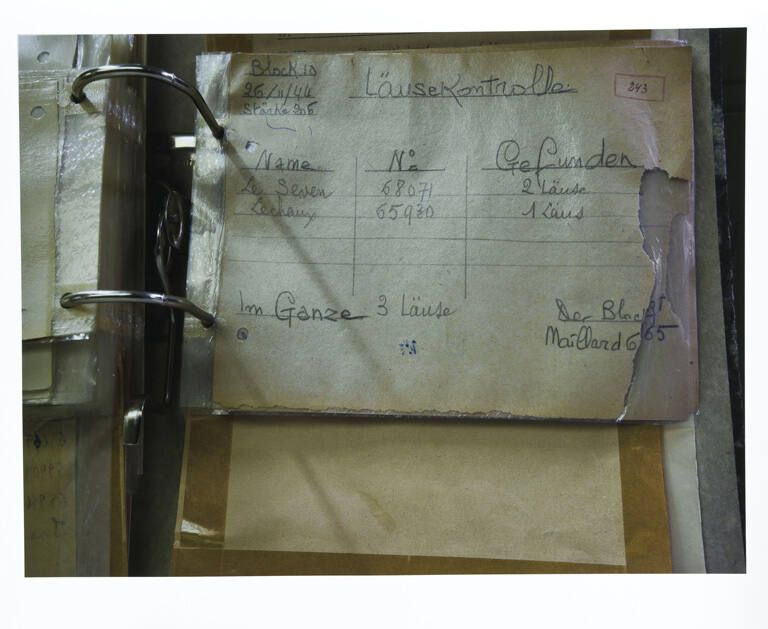 Block 10
26/11/44
Stärke 205
Läusekontrolle
243
Name N° Gefunden
Le Seven 68071 2 Läuse
Lechaux 65930 1 Läus
Im Ganze 3 Läuse
Der Block
Maillard 6 65